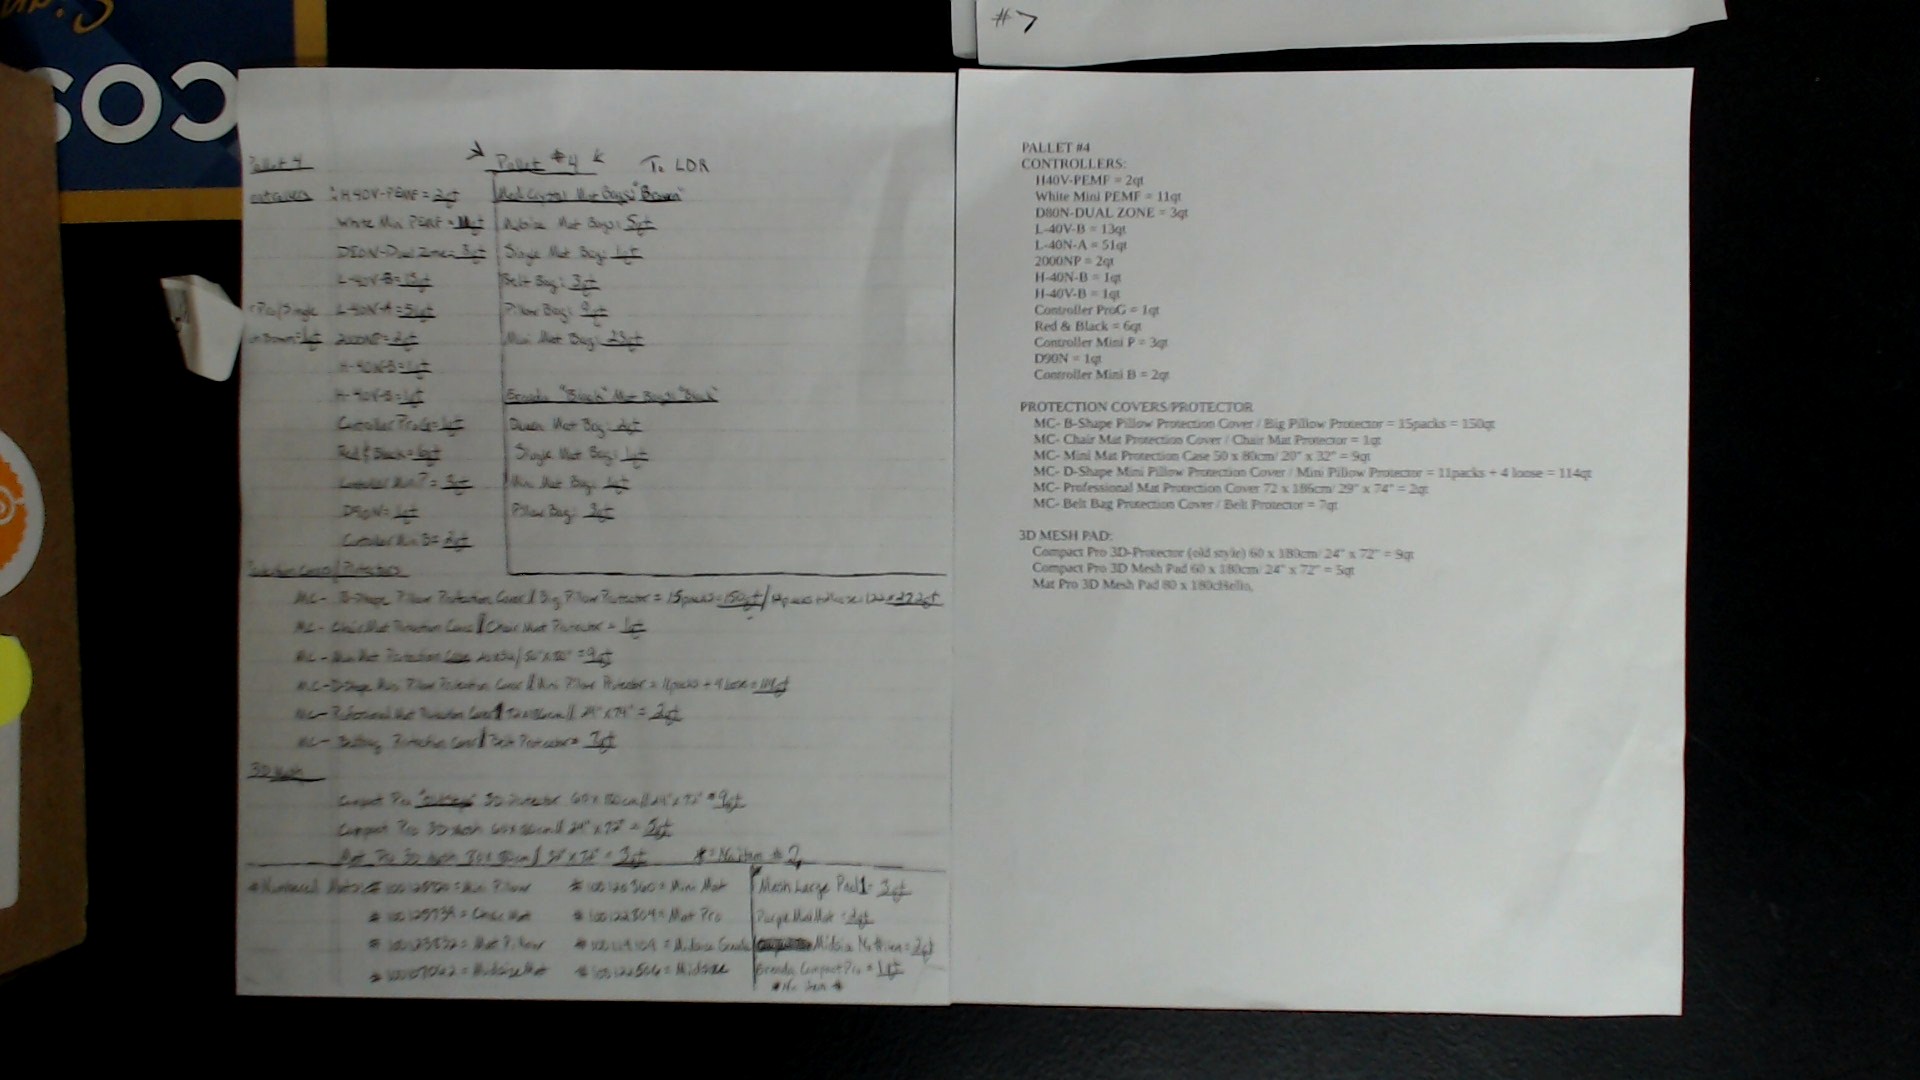 #7
COS
Pallet 4
Pallet #4
To LDR
H40V-PEMF = 2qt
White Mini PEMF = 11qt
D80N-Dual Zone = 3qt
L-40V-B = 13qt
L-40N-A = 51qt
2000NP = 2qt
H-40N-B = 1qt
H-40V-B = 1qt
Controller ProG = 1qt
Red & Black = 6qt
Controller Mini P = 3qt
D90N = 1qt
Controller Mini B = 2qt
Mat Bags: "Brown"
Mat Bags: 5qt
Single Mat Bag: 1qt
Belt Bag: 3qt
Pillow Bag: 9qt
Mini Mat Bag: 23qt
"Black" Mat Bags: "Black"
Queen Mat Bag: 2qt
Single Mat Bag: 1qt
Mini Mat Bag: 1qt
Pillow Bag: 3qt
MC- B-Shape Pillow Protection Cover / Big Pillow Protector = 15packs = 150qt /
MC- Chair Mat Protection Cover / Chair Mat Protector = 1qt
MC- Mini Mat Protection Case = 9qt
MC- D-Shape Mini Pillow Protection Cover / Mini Pillow Protector = 11packs + 4 loose = 114qt
MC- Professional Mat Protection Cover 72x186cm // 29" x 74" = 2qt
MC- Protection Cover / Belt Protector = 7qt
3D Mesh
Compact Pro 3D Protector 60 x 180cm // 24" x 72" = 9qt
Compact Pro 3D Mesh 60 x 180cm // 24" x 72" = 5qt
Mat Pro 3D Mesh = 3qt
= Mini Pillow
= Mini Mat
= Chair Mat
= Mat Pro
= Mat Pillow
= Midsize Mat
= Midsize
Mesh Large Pad = 3qt
= 2qt
Midsize = 2qt
Compact Pro = 1qt
PALLET #4
CONTROLLERS:
H40V-PEMF = 2qt
White Mini PEMF = 11qt
D80N-DUAL ZONE = 3qt
L-40V-B = 13qt
L-40N-A = 51qt
2000NP = 2qt
H-40N-B = 1qt
H-40V-B = 1qt
Controller ProG = 1qt
Red & Black = 6qt
Controller Mini P = 3qt
D90N = 1qt
Controller Mini B = 2qt
PROTECTION COVERS/PROTECTOR
MC- B-Shape Pillow Protection Cover / Big Pillow Protector = 15packs = 150qt
MC- Chair Mat Protection Cover / Chair Mat Protector = 1qt
MC- Mini Mat Protection Case 50 x 80cm/ 20" x 32" = 9qt
MC- D-Shape Mini Pillow Protection Cover / Mini Pillow Protector = 11packs + 4 loose = 114qt
MC- Professional Mat Protection Cover 72 x 186cm/ 29" x 74" = 2qt
MC- Belt Bag Protection Cover / Belt Protector = 7qt
3D MESH PAD:
Compact Pro 3D-Protector (old style) 60 x 180cm/ 24" x 72" = 9qt
Compact Pro 3D Mesh Pad 60 x 180cm/ 24" x 72" = 5qt
Mat Pro 3D Mesh Pad 80 x 180cHello,